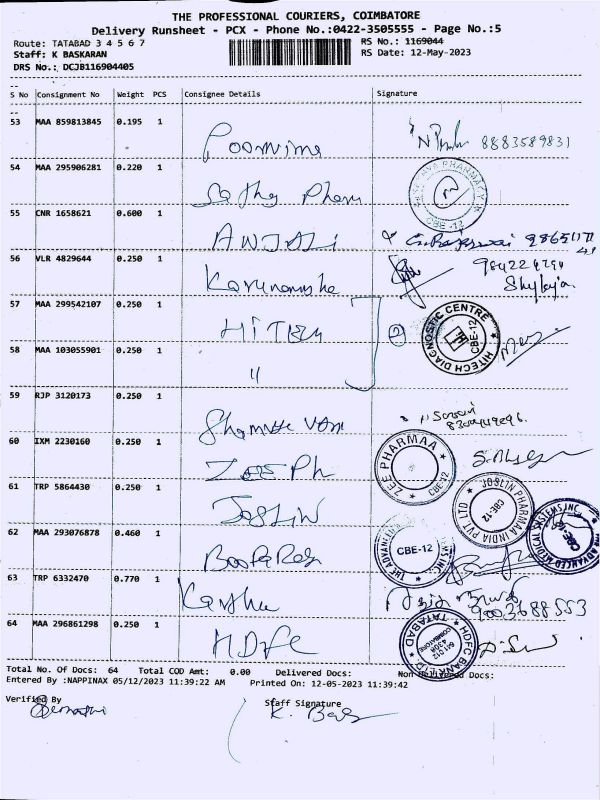 THE PROFESSIONAL COURIERS, COIMBATORE
Delivery Runsheet - PCX - Phone No.:0422-3505555 - Page No.:5
Route: TATABAD 3 4 5 6 7
RS No.: 1169044
Staff: K BASKARAN
RS Date: 12-May-2023
DRS No.: DCJB116904405
S No Consignment No Weight PCS Consignee Details Signature
53 MAA 859813845 0.195 1 Poornima 8883589831
54 MAA 295906281 0.220 1 Sathya Pharm
PHARMACY
CBE-12
55 CNR 1658621 0.600 1 ANJALI
56 VLR 4829644 0.250 1 Karunambha
Shylaja
57 MAA 299542107 0.250 1 HiTECH
HITECH DIAGNOSTIC CENTRE
CBE-12
58 MAA 103055901 0.250 1 "
59 RJP 3120173 0.250 1
60 IXM 2230160 0.250 1 ZEE Ph
ZEE PHARMAA
CBE-12
61 TRP 5864430 0.250 1 JOSLIN
JOSLIN PHARMAA INDIA PVT LTD
CBE-12
62 MAA 293076878 0.460 1
THE ADVANCED MEDICAL SYSTEMS INC.
CBE-12
63 TRP 6332470 0.770 1 Karthu
9003688553
64 MAA 296861298 0.250 1 HDFC
HDFC BANK LTD
TATABAD
COIMBATORE
Total No. Of Docs: 64 Total COD Amt: 0.00 Delivered Docs: Non Delivered Docs:
Entered By :NAPPINAX 05/12/2023 11:39:22 AM Printed On: 12-05-2023 11:39:42
Verified By
Staff Signature
K. Bas